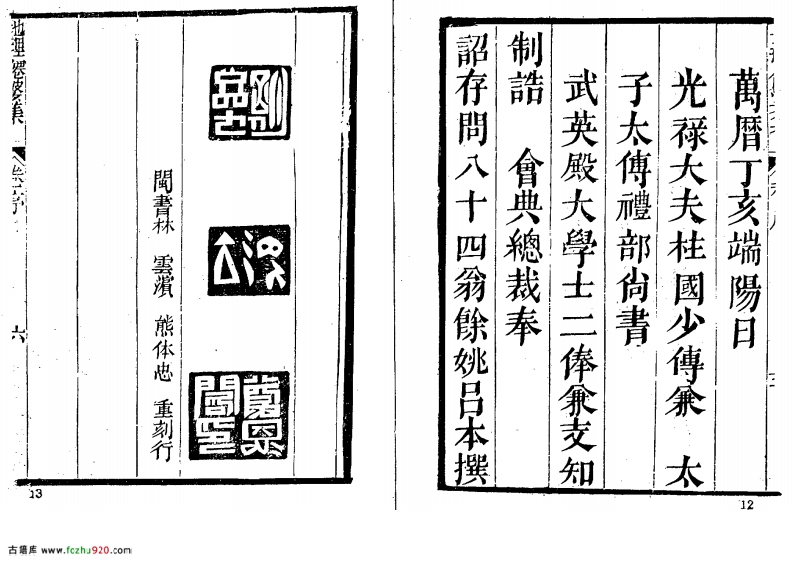 萬曆丁亥端陽日
光祿大夫柱國少傅兼 太
子太傅禮部尚書
武英殿大學士二俸兼支知
制誥 會典總裁奉
詔存問八十四翁餘姚呂本撰
12
閩書林 雲濱 熊体忠 重刻行
六
13
古籍库 www.fczhu920.com